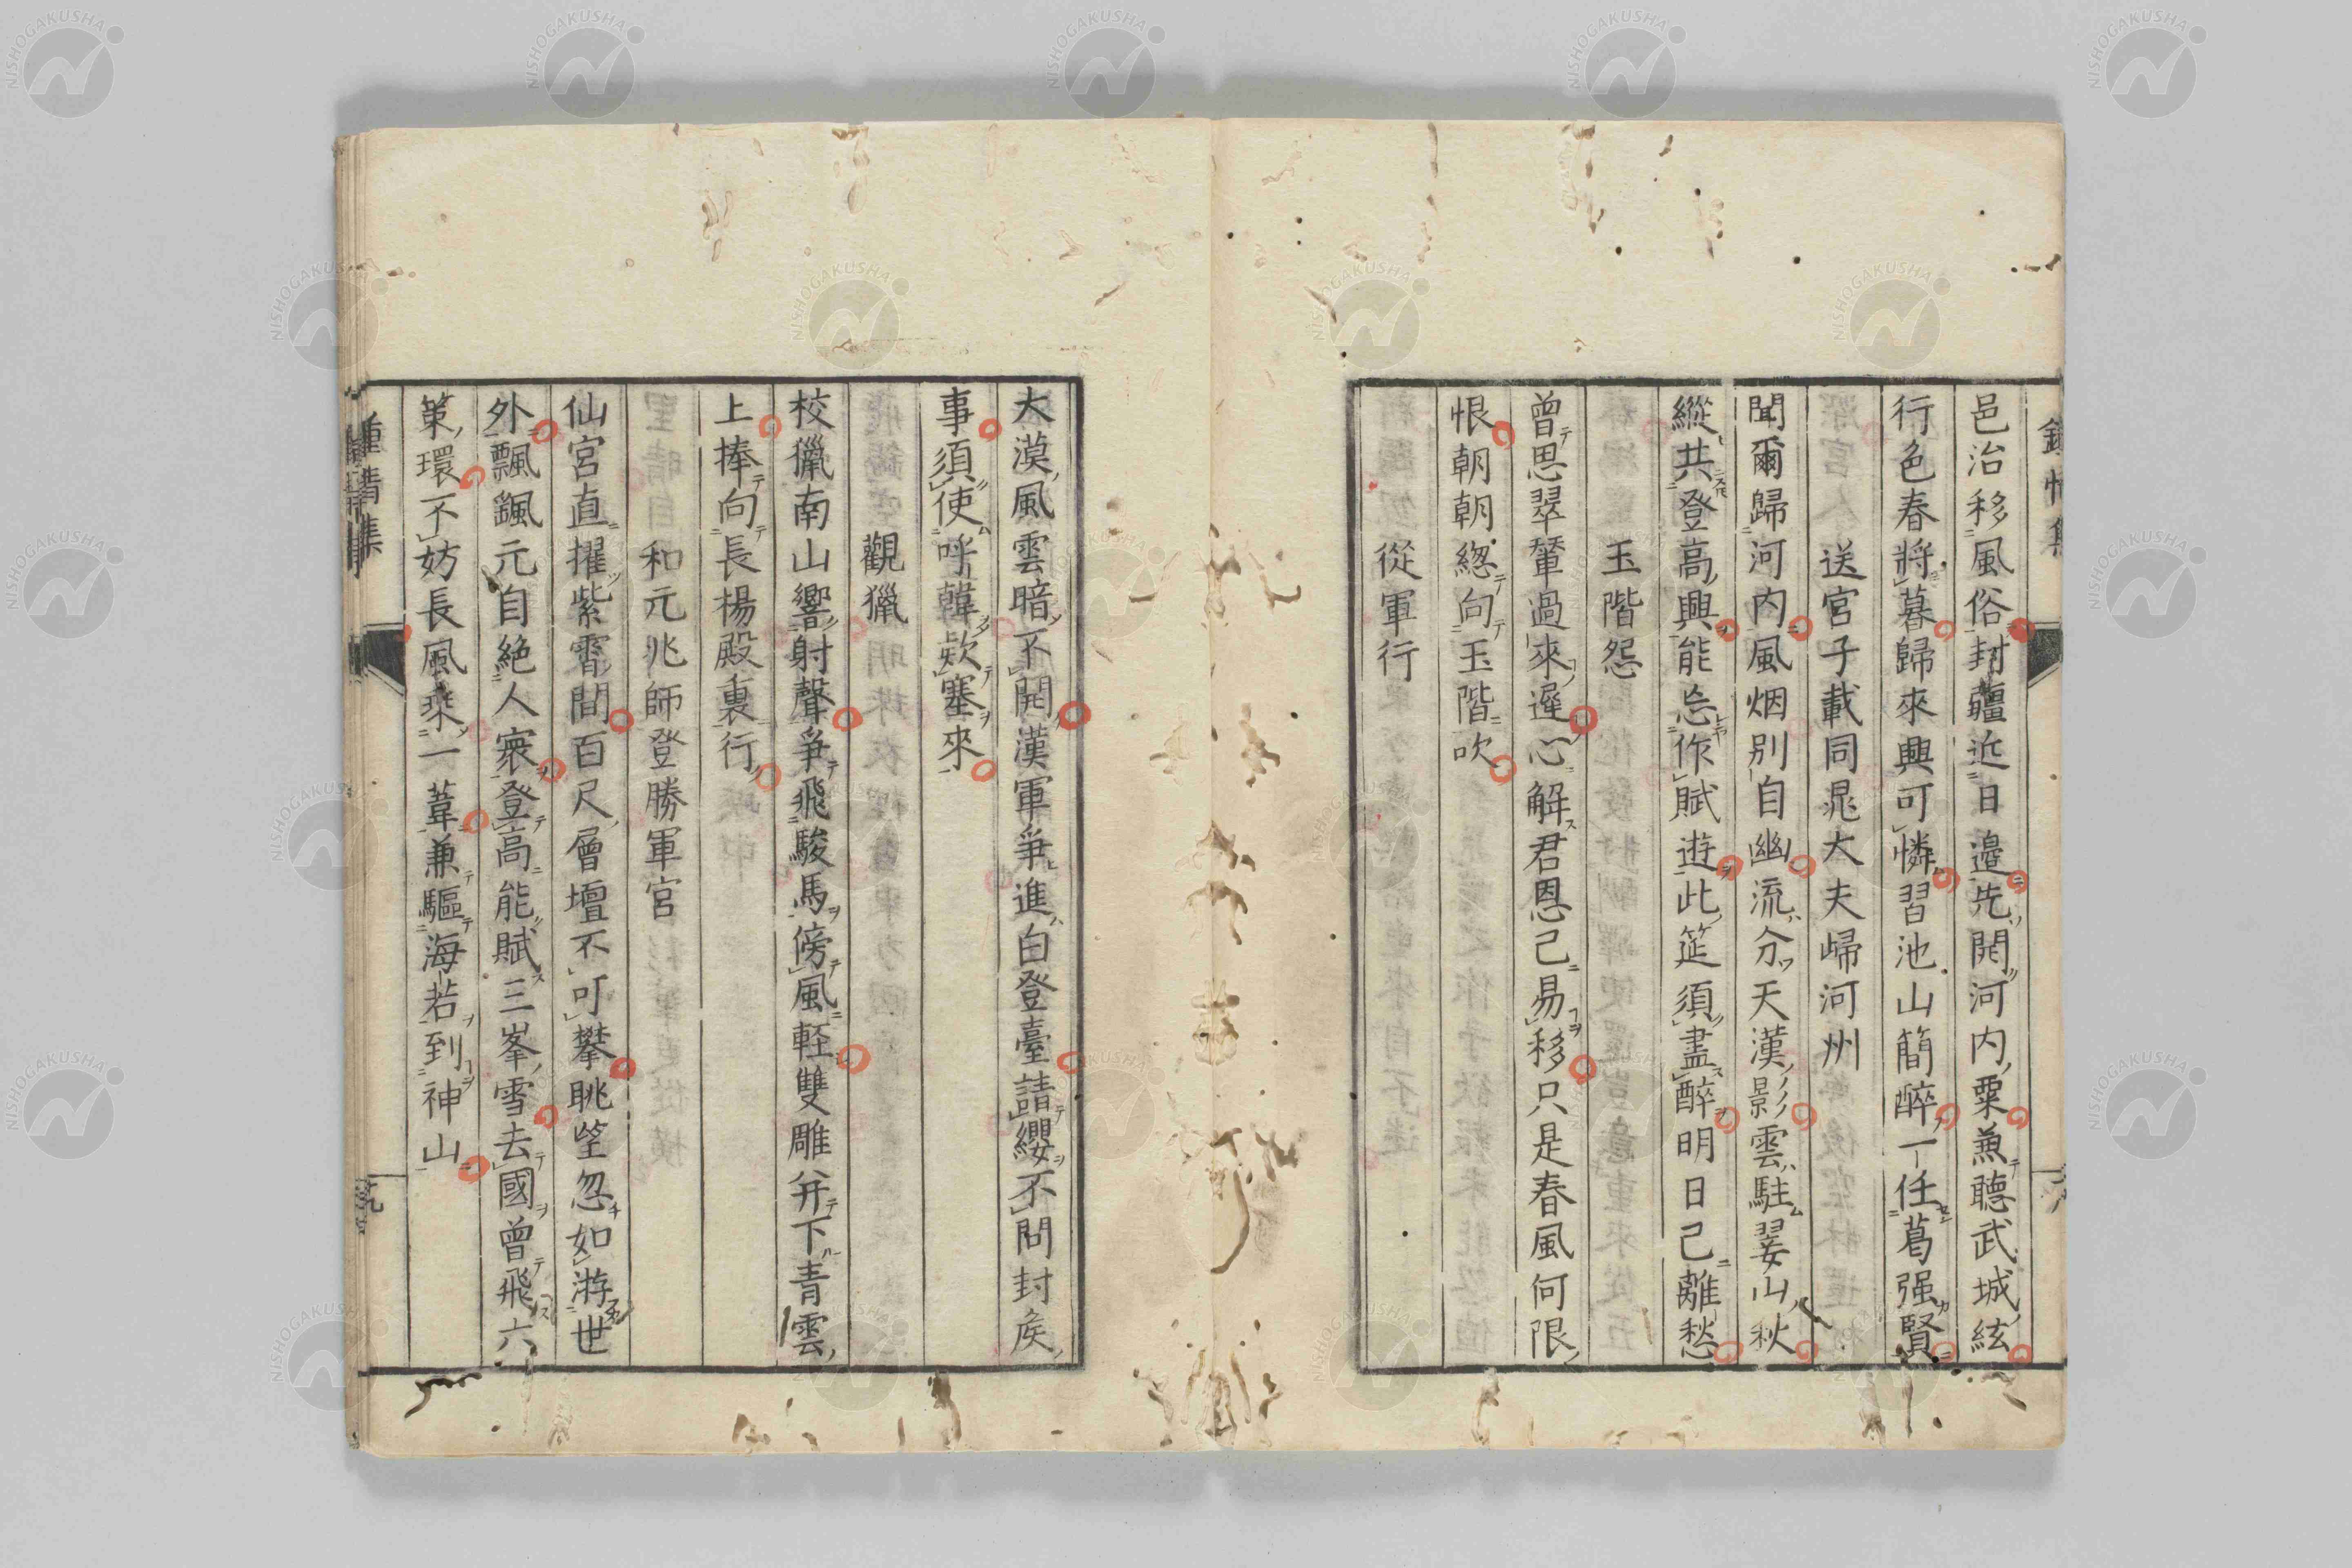 邑治移風俗封疆近日邉先開河内粟兼聴武城絃
行色春將暮歸來興可憐習池山簡醉一任葛强賢
送宮子載同晁大夫歸河州
聞爾歸河内風烟别自幽流分天漢影雲駐翣山秋
縱共登高興能忘作賦遊此筵須盡醉明日己離愁
玉階怨
曾思翠輦過來遲心解君恩己易移只是春風何限
恨朝朝緫向玉階吹
從軍行
大漠風雲暗不開漢軍爭進白登臺請纓不問封矦
事須使呼韓欵塞來
觀獵
校獵南山響射聲爭飛駿馬傍風軽雙雕并下青雲
上捧向長楊殿裏行
和元兆師登勝軍宮
仙宮直擢紫霄間百尺層壇不可攀眺望忽如游世
外飄飄元自絶人寰登高能賦三峯雪去國曾飛六
策環不妨長風乘一葦兼驅海若到神山
鍾情集
九